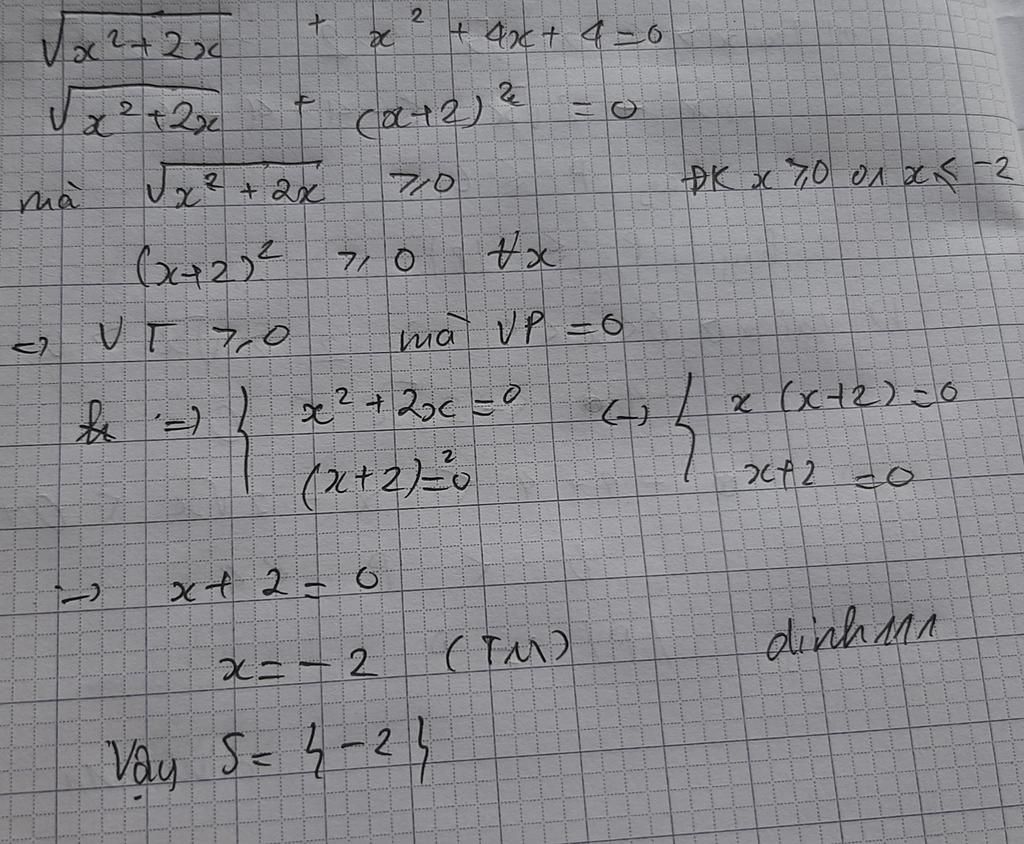 √(x² + 2x) + x² + 4x + 4 = 0
√(x² + 2x) + (x+2)² = 0
mà √(x² + 2x) ⩾ 0 ĐK x ⩾ 0 or x ⩽ -2
(x+2)² ⩾ 0 ∀x
=> VT ⩾ 0 mà VP = 0
=> { x² + 2x = 0 <-> { x (x+2) = 0
(x+2)² = 0 x+2 = 0
-> x + 2 = 0
x = - 2 (TM) dinh111
Vậy S = { -2 }